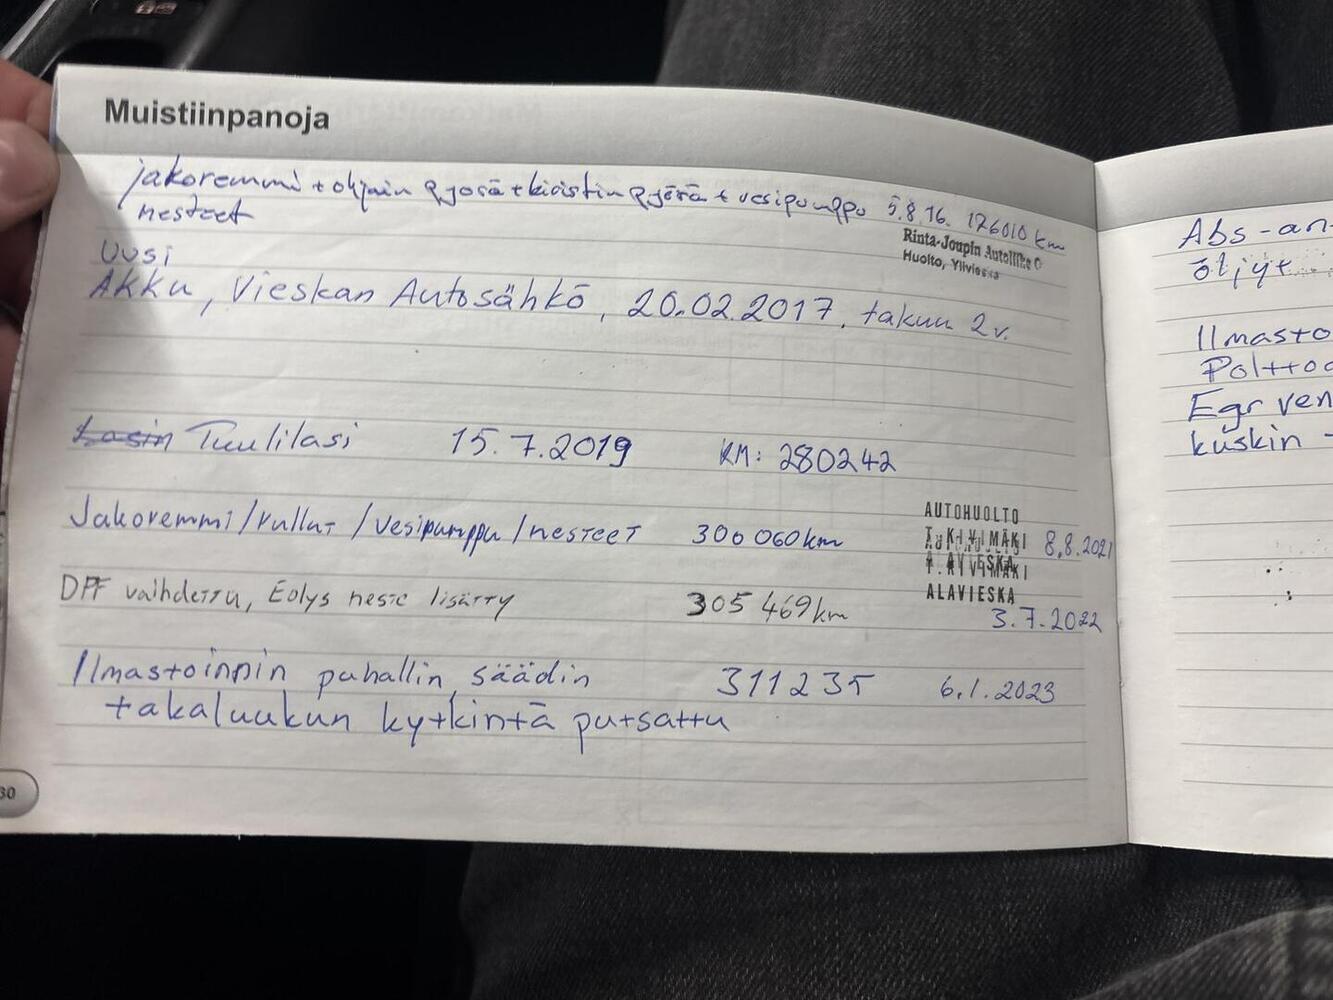 Muistiinpanoja
jakoremmi + ohjain pyörä + kiristin pyörä + vesipumppu 5.8.16. 126010 km
nesteet
Rinta-Joupin Autoliike O
Huolto, Ylivieska
Uusi
Akku, Vieskan Autosähkö, 20.02.2017, takuu 2v.
Tuulilasi 15.7.2019 KM: 280242
Jakoremmi/rullat/vesipumppu/nesteet 300 060km
AUTOHUOLTO
T. KIVIMÄKI 8.8.2021
ALAVIESKA
DPF vaihdettu, Eolys neste lisätty 305 469km
3.7.2022
Ilmastoinnin puhallin säädin 311235 6.1.2023
takaluukun kytkintä putsattu
30
Abs-an
öljyt
Ilmasto
Polttoa
Egr ven
kuskin -